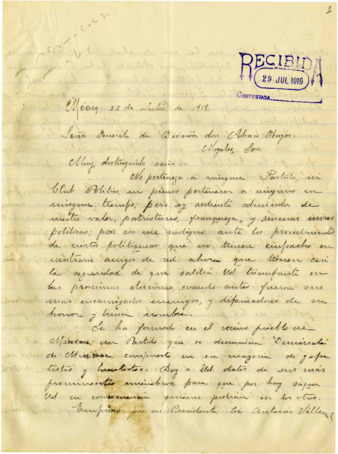 1
RECIBIDA
29 JUL 1919
CONTESTADA
México, 22 de Julio de 1919.
Señor General de División don Alvaro Obregón
Nogales, Son.
Muy distinguido señor:
No pertenezco a ningun Partido, ni
Club Político ni pienso pertenecer a ninguno en
ningun tiempo; pero soy ardiente admirador de
vuestro valor, patriotismo, franqueza, y sinceras miras
políticas; por eso me indigno ante los procedimientos
de ciertos politiqueros que no tienen empacho en
mostrarse amigos de ud ahora que tienen casi
la seguridad de que saldrá Ud. triunfante en
las proximas elecciones, cuando antes fueron sus
mas encarnizados enemigos, y difamadores de su
honor y buen nombre.
Se ha formado en el vecino pueblo de
Mixcoac un Partido que se denomina "Democrata"
de Mixcoac, compuesto en su mayoria de
tistas y Huertistas. Doy a Ud. datos de sus más
prominentes miembros, para que por hoy sepa
Ud en consecuencia quienes podrán ser los otros.
Empiezo por su Presidente Lic Antonio